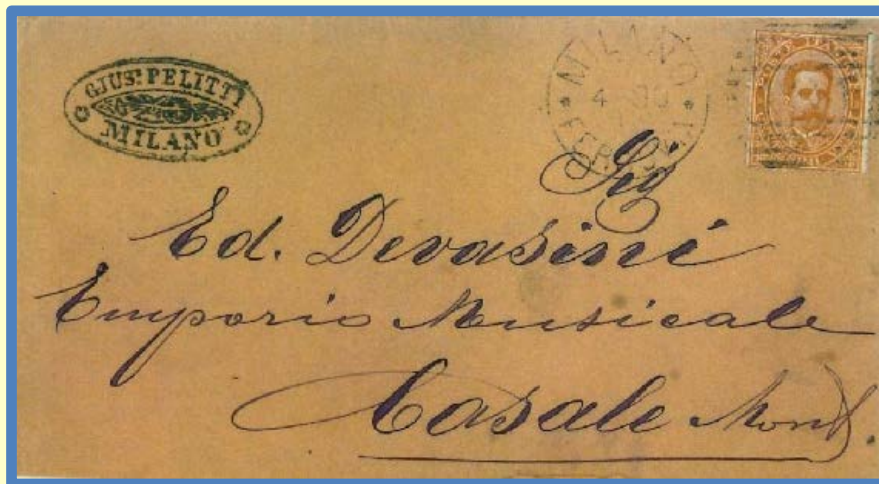 GIUS. PELITTI
MILANO
MILANO
4 - 30
FERROVIA
POSTE ITALIANE
Sig
Ed. Devasini
Emporio Musicale
Casale Monf.